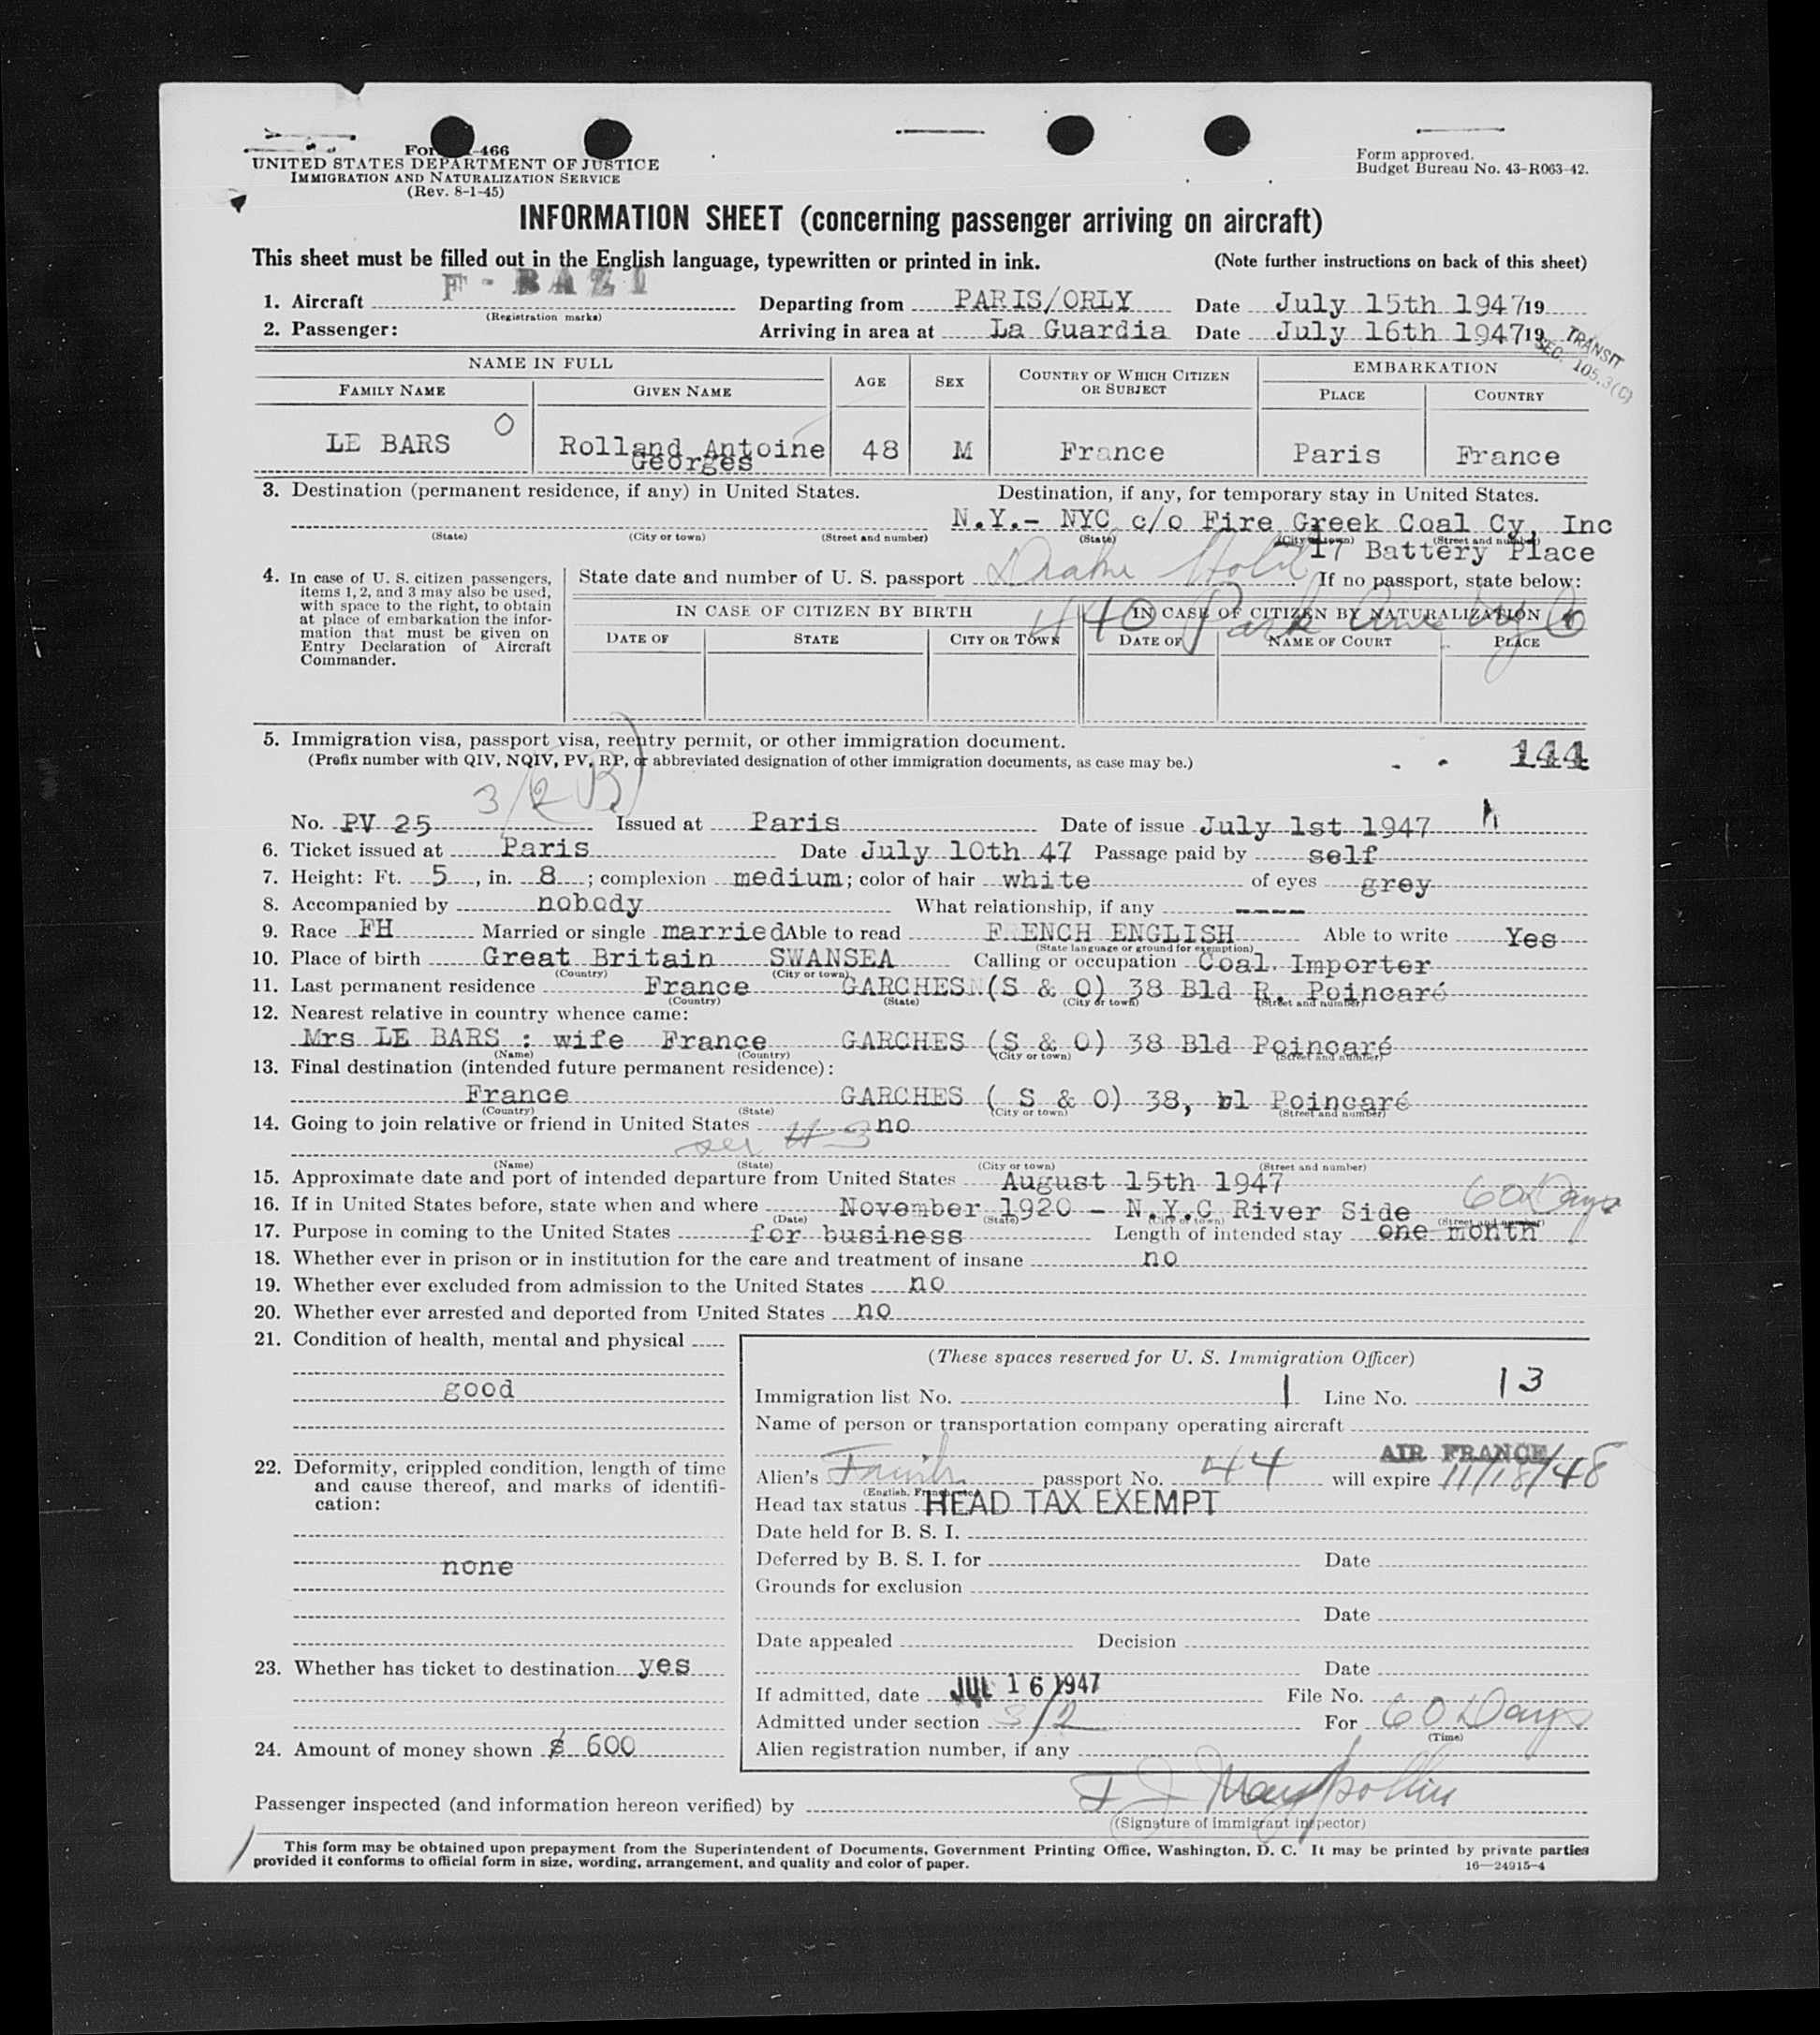 Form I-466
UNITED STATES DEPARTMENT OF JUSTICE
IMMIGRATION AND NATURALIZATION SERVICE
(Rev. 8-1-45)
Form approved.
Budget Bureau No. 43-R063-42.
INFORMATION SHEET (concerning passenger arriving on aircraft)
This sheet must be filled out in the English language, typewritten or printed in ink. (Note further instructions on back of this sheet)
1. Aircraft F-BAZI Departing from PARIS/ORLY Date July 15th 1947 19
(Registration marks)
2. Passenger: Arriving in area at La Guardia Date July 16th 1947 19
TRANSIT
SEC. 105.3(C)
NAME IN FULL AGE SEX COUNTRY OF WHICH CITIZEN OR SUBJECT EMBARKATION
FAMILY NAME GIVEN NAME PLACE COUNTRY
LE BARS O Rolland Antoine Georges 48 M France Paris France
3. Destination (permanent residence, if any) in United States. Destination, if any, for temporary stay in United States.
N.Y.- NYC c/o Fire Greek Coal Cy, Inc
(State) (City or town) (Street and number) (State) (City or town) (Street and number)
17 Battery Place
4. In case of U. S. citizen passengers, items 1, 2, and 3 may also be used, with space to the right, to obtain at place of embarkation the information that must be given on Entry Declaration of Aircraft Commander.
State date and number of U. S. passport Drake Hotel If no passport, state below:
440 Park Ave NYC
IN CASE OF CITIZEN BY BIRTH IN CASE OF CITIZEN BY NATURALIZATION
DATE OF STATE CITY OR TOWN DATE OF NAME OF COURT PLACE
5. Immigration visa, passport visa, reentry permit, or other immigration document.
(Prefix number with QIV, NQIV, PV, RP, or abbreviated designation of other immigration documents, as case may be.) 144
3/(2 B)
No. PV 25 Issued at Paris Date of issue July 1st 1947
6. Ticket issued at Paris Date July 10th 47 Passage paid by self
7. Height: Ft. 5, in. 8; complexion medium; color of hair white of eyes grey
8. Accompanied by nobody What relationship, if any ----
9. Race FH Married or single married Able to read FRENCH ENGLISH Able to write Yes
(State language or ground for exemption)
10. Place of birth Great Britain SWANSEA Calling or occupation Coal Importer
(Country) (City or town)
11. Last permanent residence France GARCHES (S & O) 38 Bld R. Poincaré
(Country) (State) (City or town) (Street and number)
12. Nearest relative in country whence came:
Mrs LE BARS : wife France GARCHES (S & O) 38 Bld Poincaré
(Name) (Country) (City or town) (Street and number)
13. Final destination (intended future permanent residence):
France GARCHES ( S & O) 38, bl Poincaré
(Country) (State) (City or town) (Street and number)
14. Going to join relative or friend in United States no
see # 3
(Name) (State) (City or town) (Street and number)
15. Approximate date and port of intended departure from United States August 15th 1947
16. If in United States before, state when and where November 1920 - N.Y.C River Side 60 Days
(Date) (State) (City or town) (Street and number)
17. Purpose in coming to the United States for business Length of intended stay one month
18. Whether ever in prison or in institution for the care and treatment of insane no
19. Whether ever excluded from admission to the United States no
20. Whether ever arrested and deported from United States no
21. Condition of health, mental and physical
good
22. Deformity, crippled condition, length of time and cause thereof, and marks of identification:
none
23. Whether has ticket to destination yes
24. Amount of money shown $ 600
(These spaces reserved for U. S. Immigration Officer)
Immigration list No. 1 Line No. 13
Name of person or transportation company operating aircraft
AIR FRANCE
Alien's passport No. 44 will expire 11/18/48
(English, French, etc.)
Head tax status HEAD TAX EXEMPT
Date held for B. S. I.
Deferred by B. S. I. for Date
Grounds for exclusion
Date
Date appealed Decision
Date
If admitted, date JUL 16 1947 File No.
Admitted under section 3/2 For 60 Days
(Time)
Alien registration number, if any
Passenger inspected (and information hereon verified) by
(Signature of immigrant inspector)
This form may be obtained upon prepayment from the Superintendent of Documents, Government Printing Office, Washington, D. C. It may be printed by private parties
provided it conforms to official form in size, wording, arrangement, and quality and color of paper. 16—24915-4